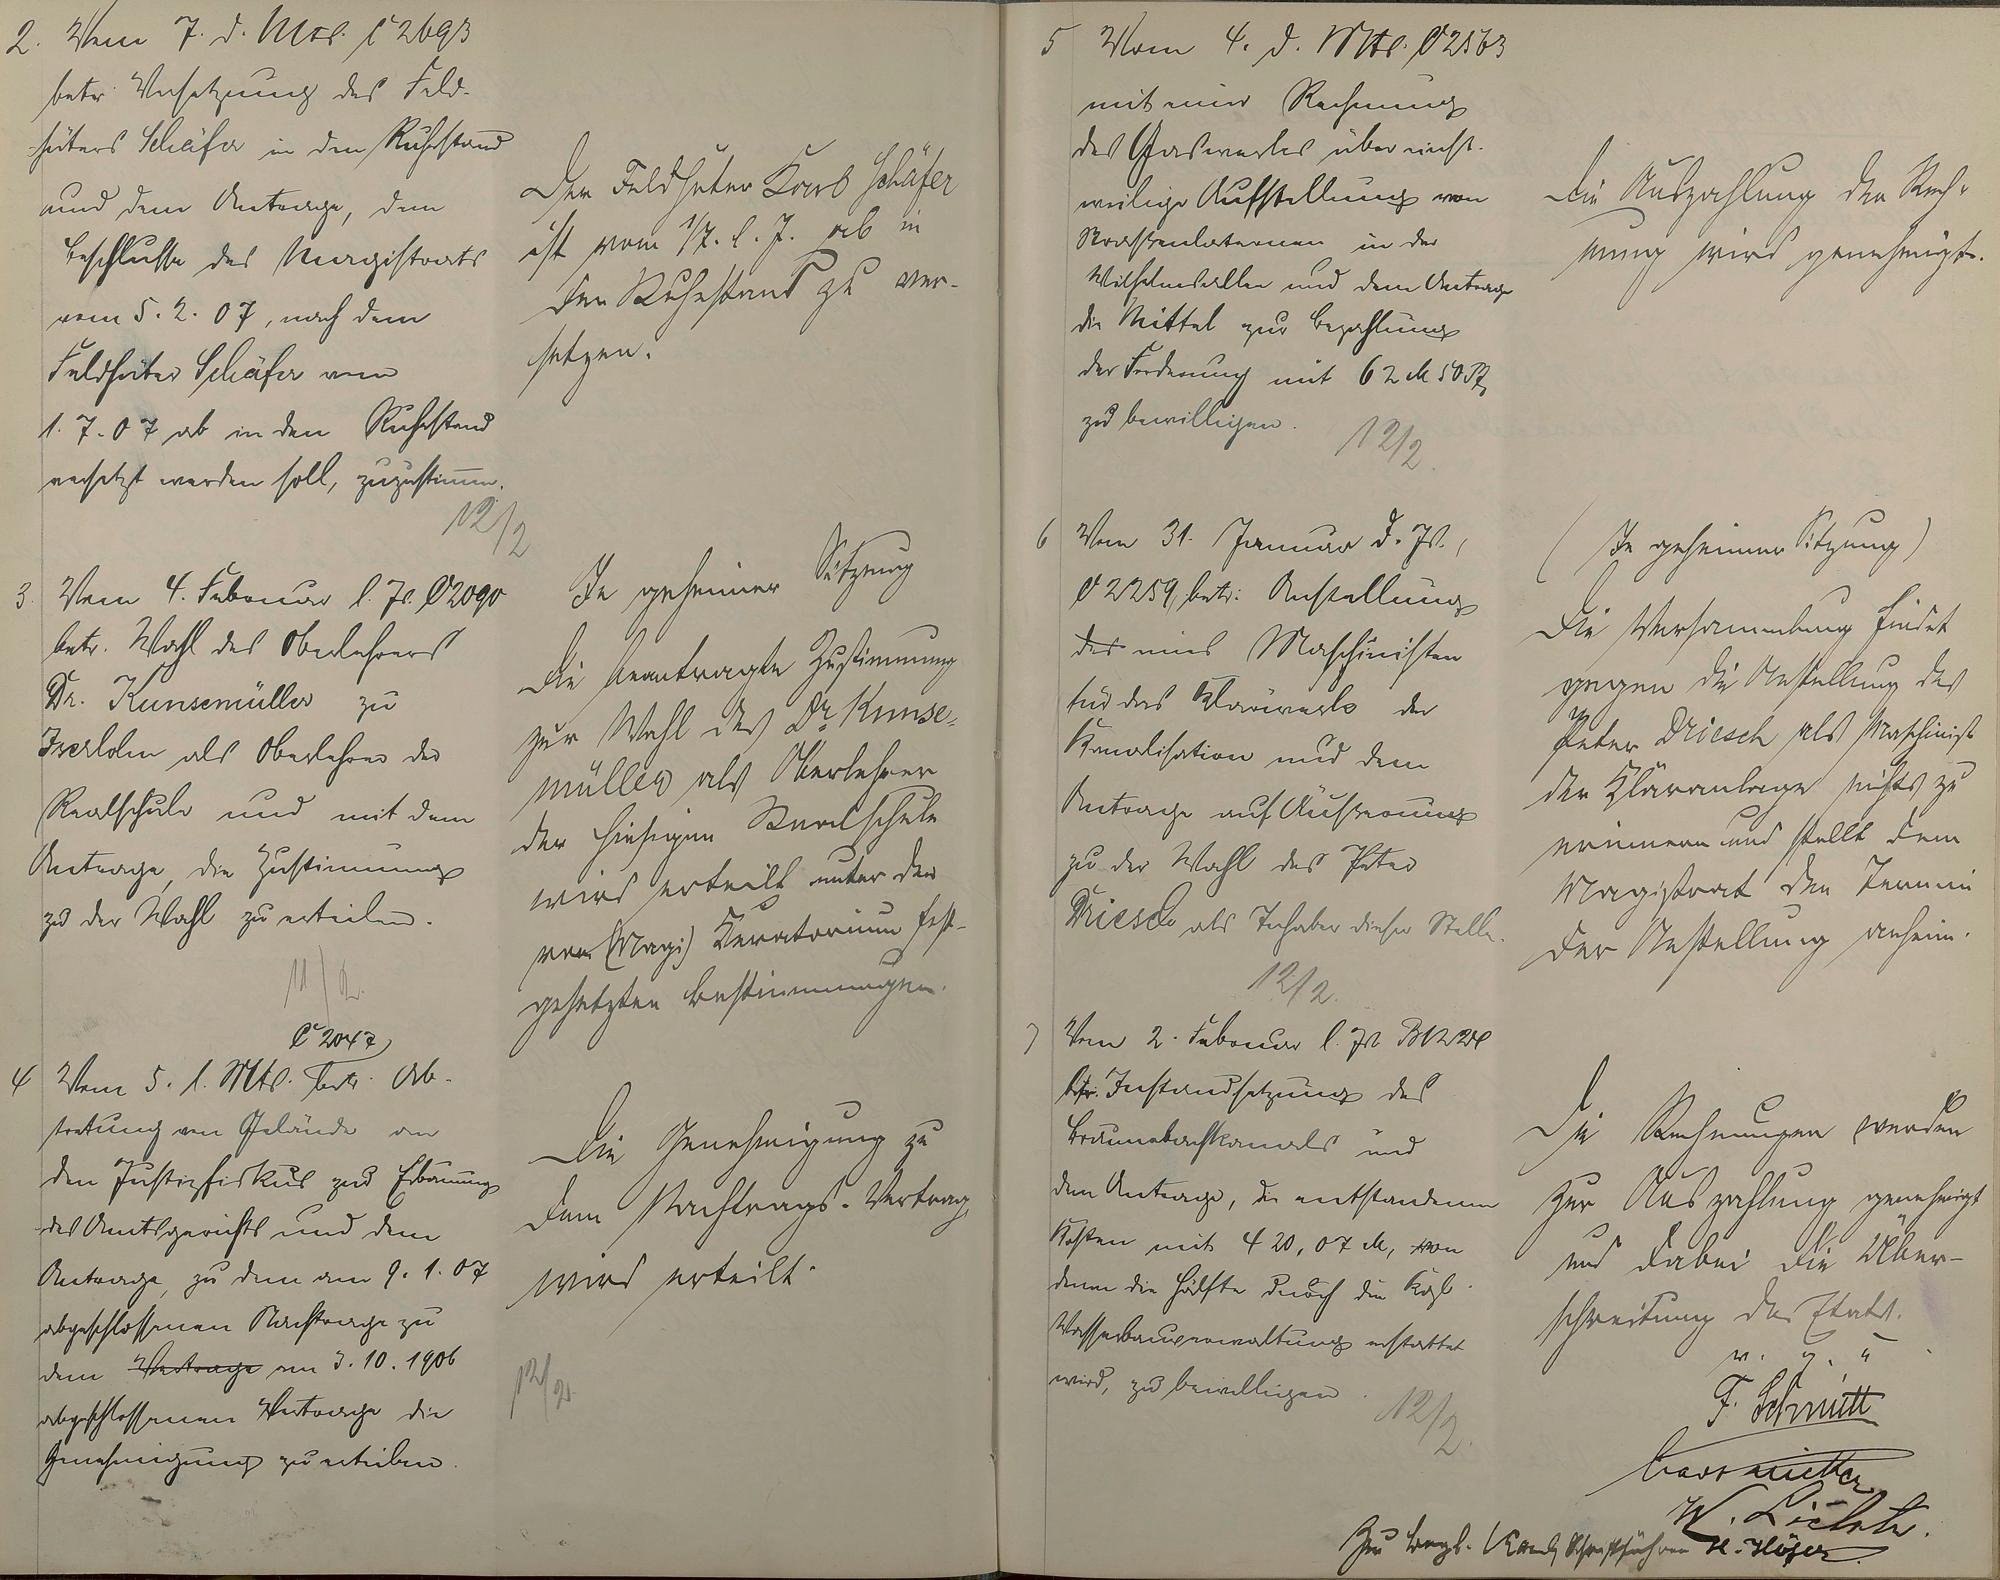 2. Vom 7. d. Mts. C 2693
betr. Versetzung des Feld-
hüters Schäfer in den Ruhestand
und dem Antrage, dem
Beschlusse des Magistrats
vom 5. 2. 07, nach dem
Feldhüter Schäfer vom
1. 7. 07 ab in den Ruhestand
versetzt werden soll, zuzustimm.
12/2
Der Feldhüter Karl Schäfer
ist vom 1/7. l. J. ab in
den Ruhestand zu ver-
setzen.
3. Vom 4. Februar l. Js. C 2090
betr. Wahl des Oberlehrers
Dr. Kunsemüller zu
Iserlohn als Oberlehrer der
Realschule und mit dem
Antrage, die Zustimmung
zu der Wahl zu erteilen.
11/2.
In geheimer Sitzung
Die beantragte Zustimmung
zur Wahl des Dr. Kunse-
müller als Oberlehrer
der hiesigen Realschule
wird erteilt unter den
vom (Magi) Kuratorium fest-
gesetzten Bestimmungen.
C 2047
4 Vom 5. l. Mts. betr. Ab-
tretung von Gelände an
den Justizfiskus zur Erbauung
des Amtsgerichts und dem
Antrage, zu dem am 9. 1. 07
abgeschlossenen Nachtrage zu
dem Vertrage am 3. 10. 1906
abgeschlossenen Vertrage die
Genehmigung zu erteilen.
Die Genehmigung zu
dem Nachtrags-Vertrag
wird erteilt.
12/2.
5 Vom 4. d. Mts. C 2563
mit einer Rechnung
des Gaswerkes über einst-
weilige Aufstellung von
Strassenlaternen in der
Wilhelmsallee und dem Antrage
die Mittel zur Bezahlung
der Forderung mit 62 M 50 Pf
zu bewilligen.
12/2.
Die Auszahlung der Rech-
nung wird genehmigt.
6 Vom 31. Januar d. Js.,
C 2259, betr. Anstellung
des eines Maschinisten
für das Klärwerk der
Kanalisation und dem
Antrage auf Äusserung
zu der Wahl des Peter
Driesch als Inhaber dieser Stelle.
12/2.
(In geheimer Sitzung)
Die Versammlung findet
gegen die Anstellung des
Peter Driesch als Maschinist
der Kläranlage nichts zu
erinnern und stellt dem
Magistrat den Termin
der Anstellung anheim.
7 Vom 2. Februar l. Js.
betr. Instandsetzung des
Braunebachkanals und
dem Antrage, die entstandenen
Kosten mit 420,07 M, von
denen die Hälfte durch die Kögl.
Wasserbauverwaltung erstattet
wird, zu bewilligen.
12/2.
Die Rechnungen werden
zur Auszahlung genehmigt
und dabei die Über-
schreitung des Etats.
v. g. u.
F. Schmitt
W.
Zur Schriftführer H. Höfer